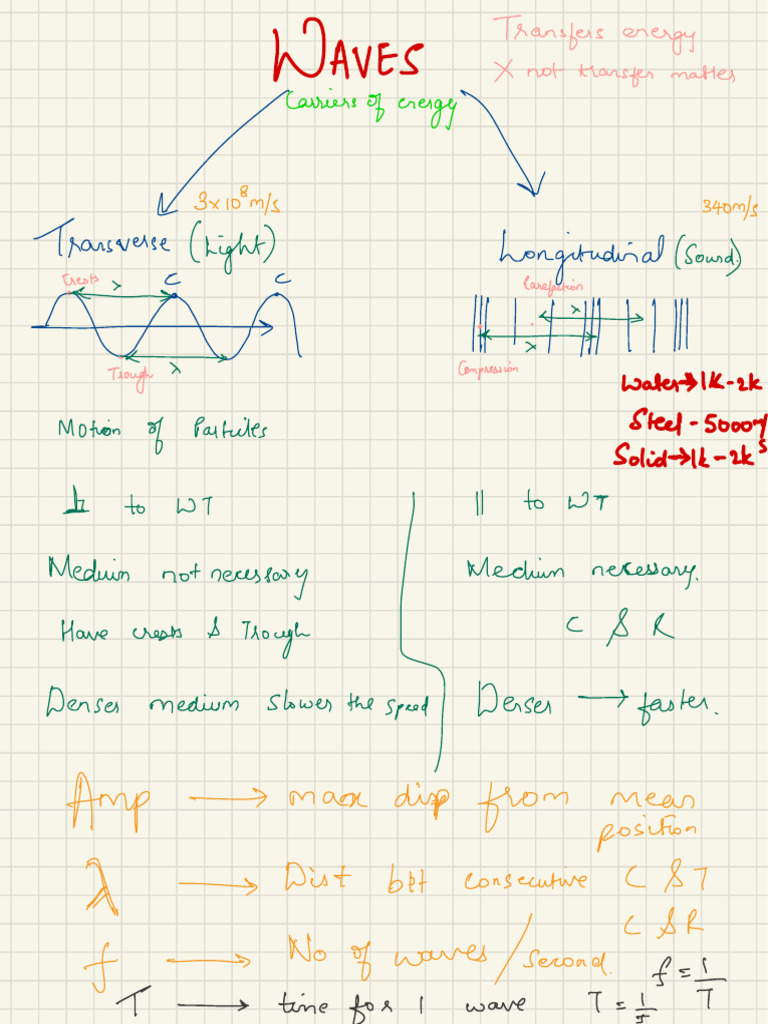 WAVES
Transfers energy
X not transfer matter
Carriers of energy
3×10⁸ m/s
340m/s
Transverse (Light)
Longitudinal (Sound)
Crests λ C C
Rarefaction
λ
λ
Trough λ
Compression
Water→1K-2K
Steel - 5000m/s
Solid→1k-2k
Motion of Particles
⊥ to WT
|| to WT
Medium not necessary
Medium necessary.
Have crests & Trough
C & R
Denser medium slower the speed
Denser → faster.
Amp → max disp from mean
position
λ → Dist bet consecutive C & T
C & R
f → No of waves/second.
f = 1/T
T → time for 1 wave T = 1/f